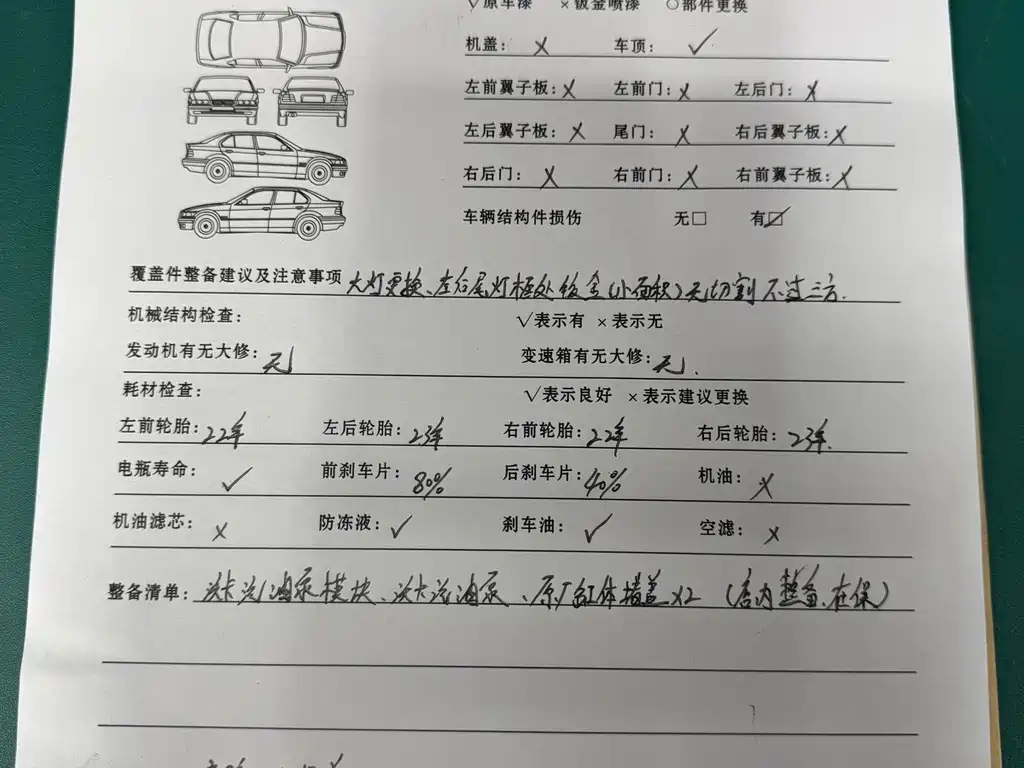 √原车漆 ×钣金喷漆 ○部件更换
机盖： × 车顶： √
左前翼子板：× 左前门：× 左后门：×
左后翼子板：× 尾门：× 右后翼子板：×
右后门： × 右前门：× 右前翼子板：×
车辆结构件损伤 无□ 有☑
覆盖件整备建议及注意事项 大灯更换、左后尾灯框处钣金(小面积)无切割不过三方.
机械结构检查： √表示有 ×表示无
发动机有无大修：无 变速箱有无大修：无.
耗材检查： √表示良好 ×表示建议更换
左前轮胎：22年 左后轮胎：23年 右前轮胎：22年 右后轮胎：23年.
电瓶寿命： √ 前刹车片：80% 后刹车片：40% 机油： ×
机油滤芯： × 防冻液：√ 刹车油：√ 空滤： ×
整备清单： 油泵模块、油泵、原厂缸体堵盖×2 (店内整备、在保)